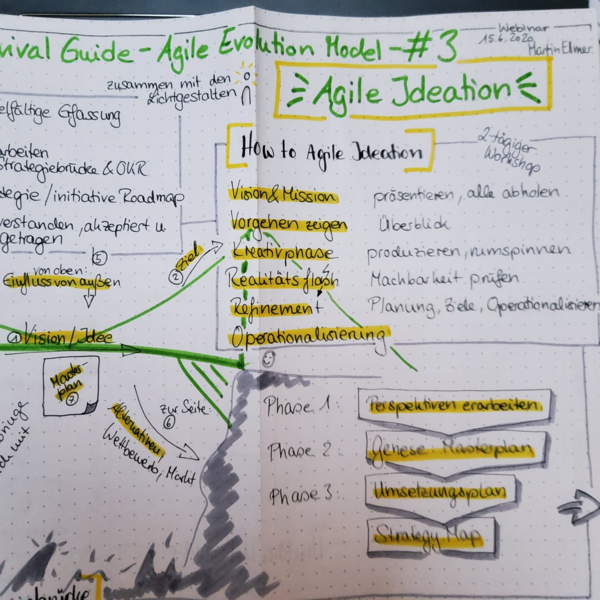 vival Guide - Agile Evolution Model - #3
Webinar
15.6.2020
Martin Elmer
zusammen mit den
Lichtgestalten
Agile Ideation
elfältige Erfassung
arbeiten
Strategiebrücke & OKR
tegie / initiative Roadmap
verstanden, akzeptiert u.
getragen
How to Agile Ideation
2-tägiger
Workshop
Vision & Mission präsentieren, alle abholen
Vorgehen zeigen Überblick
Kreativphase produzieren, rumspinnen
Realitätsflash Machbarkeit prüfen
Refinement Planung, Ziele, Operationalisieren
Operationalisierung
5
von oben:
Einfluss von außen
2 Ziel
1 Vision / Idee
Masterplan
7
zur Seite:
6
Alternativen,
Wettbewerb, Markt
Phase 1: Perspektiven erarbeiten
Phase 2: Genese Masterplan
Phase 3: Umsetzungsplan
Strategy Map